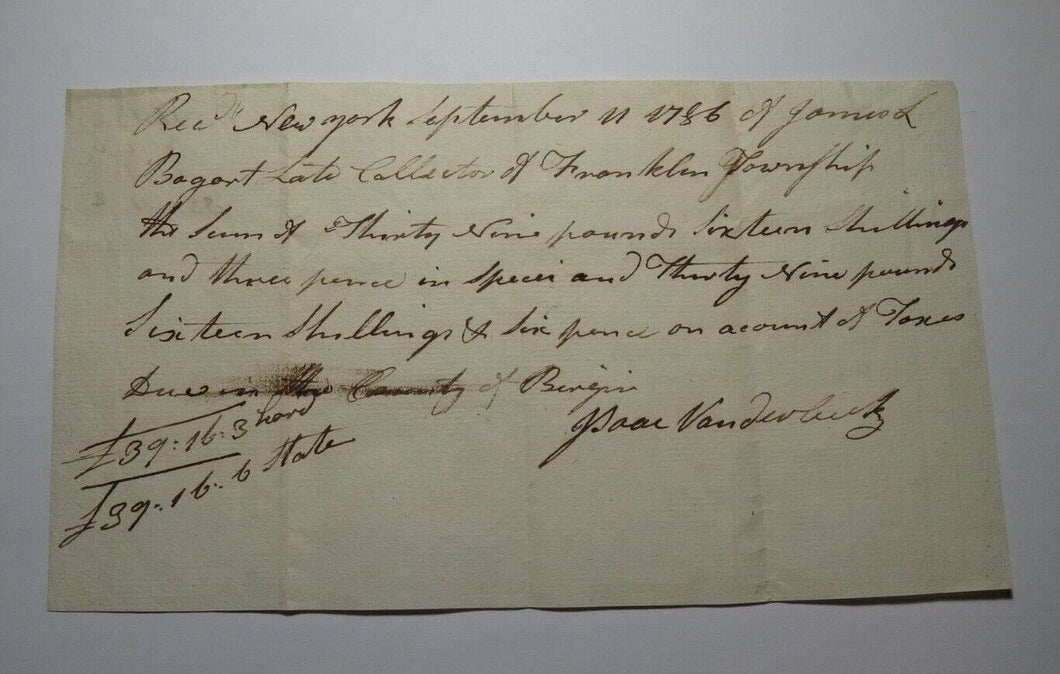 Recd New york September 11 1786 of James L
Bogart Late Collector of Franklin Township
the Sum of Thirty Nine pounds Sixteen Shillings
and three pence in Specei and Thirty Nine pounds
Sixteen Shillings & Six pence on acount of Taxes
Due in the County of Bergin
£39:16:3 hard
£39:16:6 State
Isaac Vanderbeek